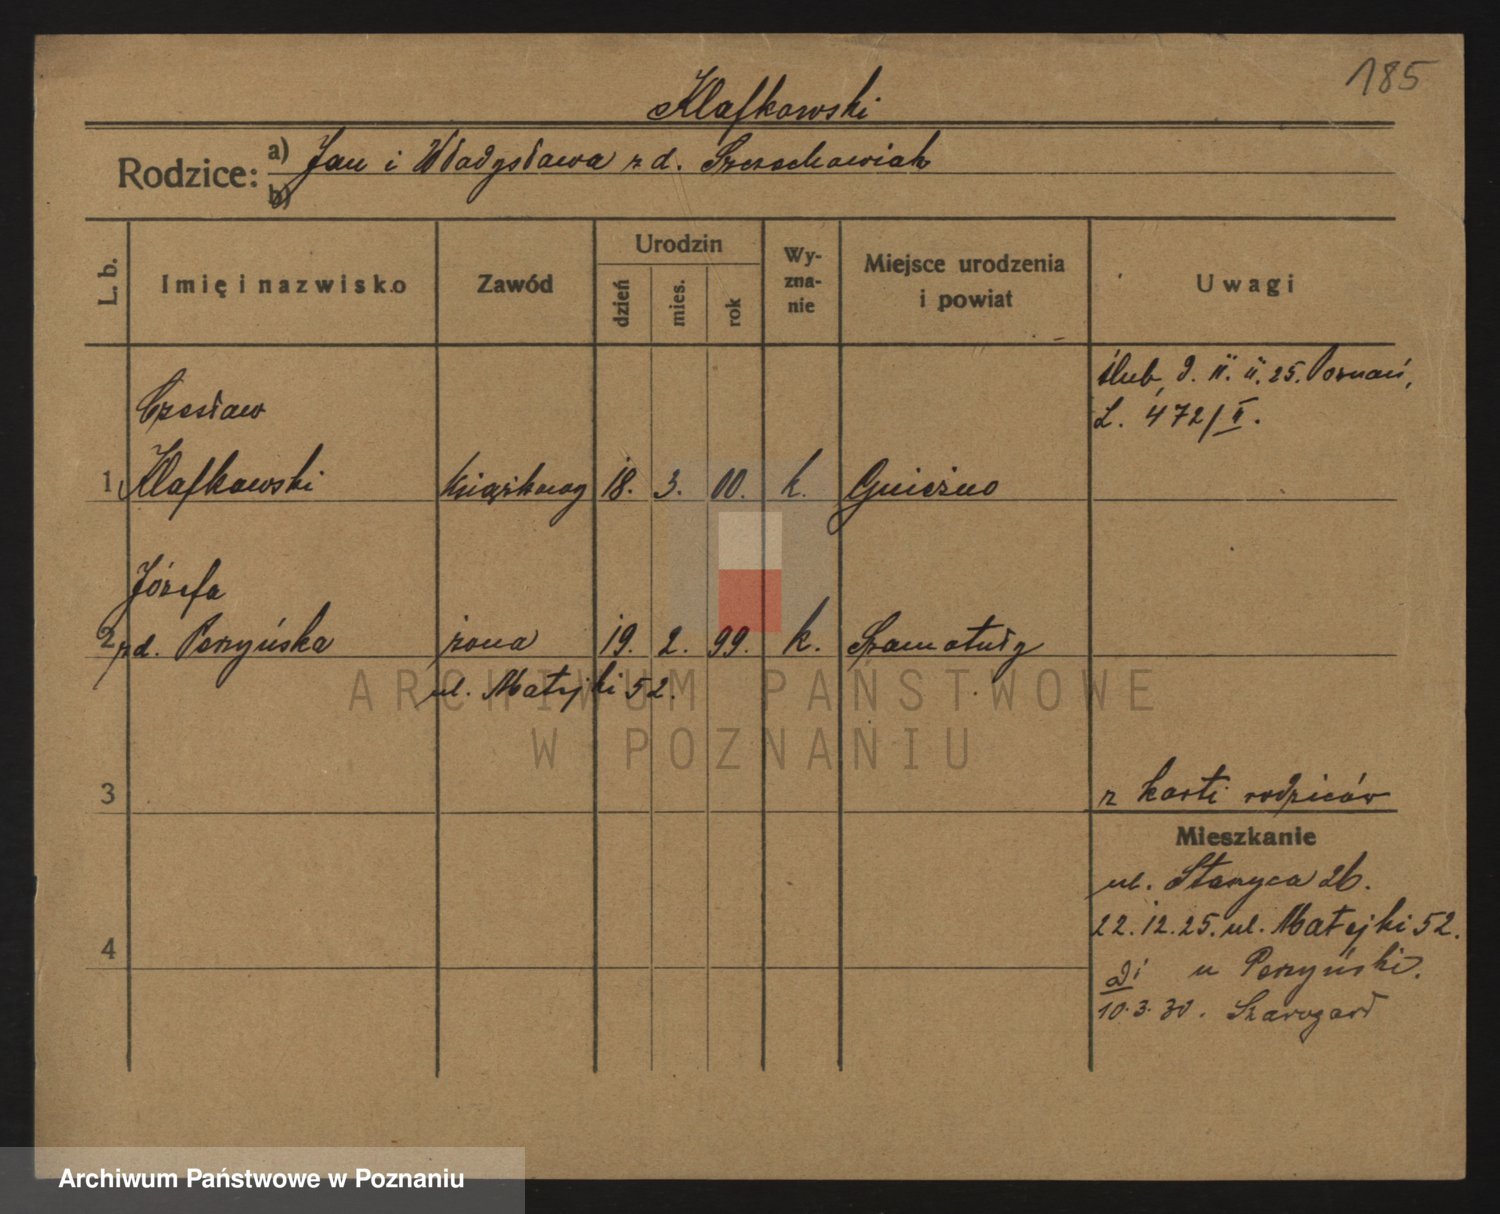 185
Klafkowski
Rodzice: a) Jan i Władysława z d. Szczechowiak
b)
L. b. Imię i nazwisko Zawód Urodzin dzień mies. rok Wy-zna-nie Miejsce urodzenia i powiat Uwagi
ślub d. 11. 25. Poznań,
L. 472/II.
Czesław
1 Klafkowski książkowy 18. 3. 00. k. Gniezno
Józefa
2 z d. Perzyńska żona 19. 2. 99. k. Szamotuły
ul. Matejki 52.
ARCHIWUM PAŃSTWOWE
W POZNANIU
3 z karti rodziców
Mieszkanie
ul. Staszyca 26.
22. 12. 25. ul. Matejki 52.
4 u Perzyński.
10. 3. 30. Starogard
Archiwum Państwowe w Poznaniu